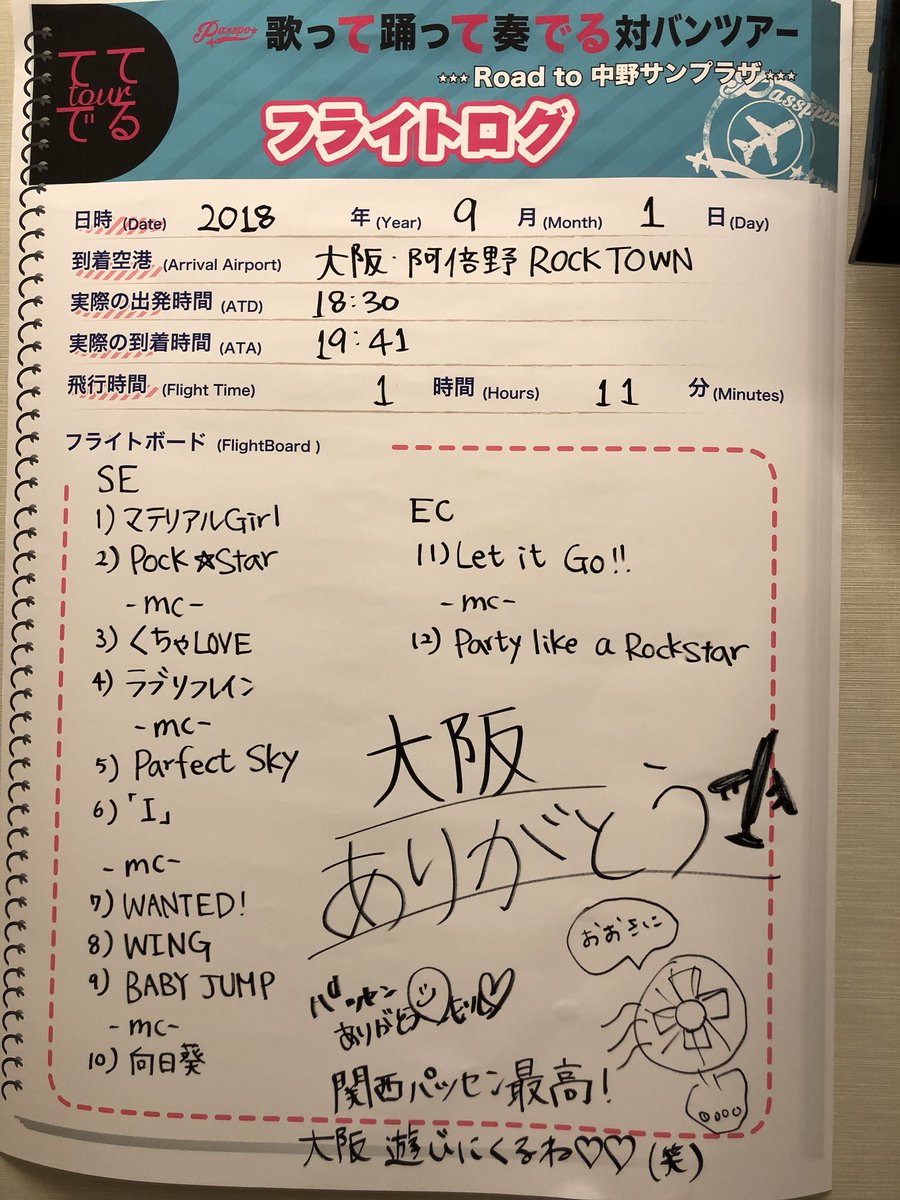 Passpo☆ 歌って踊って奏でる対バンツアー
てて
tour
でる
☆☆☆ Road to 中野サンプラザ ☆☆☆
フライトログ
日時 (Date) 2018 年 (Year) 9 月 (Month) 1 日 (Day)
到着空港 (Arrival Airport) 大阪・阿倍野 ROCK TOWN
実際の出発時間 (ATD) 18:30
実際の到着時間 (ATA) 19:41
飛行時間 (Flight Time) 1 時間 (Hours) 11 分 (Minutes)
フライトボード (FlightBoard )
SE
1) マテリアルGirl
2) Pock☆Star
-mc-
3) くちゃLOVE
4) ラブリフレイン
-mc-
5) Parfect Sky
6) 「I」
-mc-
7) WANTED!
8) WING
9) BABY JUMP
-mc-
10) 向日葵
EC
11) Let it Go!!
-mc-
12) Party like a Rockstar
大阪
ありがとう
おおきに
パッセン
ありがとう
関西パッセン最高!
大阪 遊びにくるね♡♡(笑)